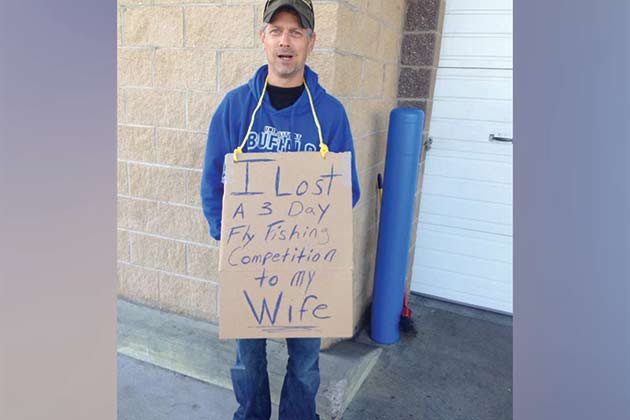 BUFFALO
I Lost
A 3 Day
Fly Fishing
Competition
to my
Wife